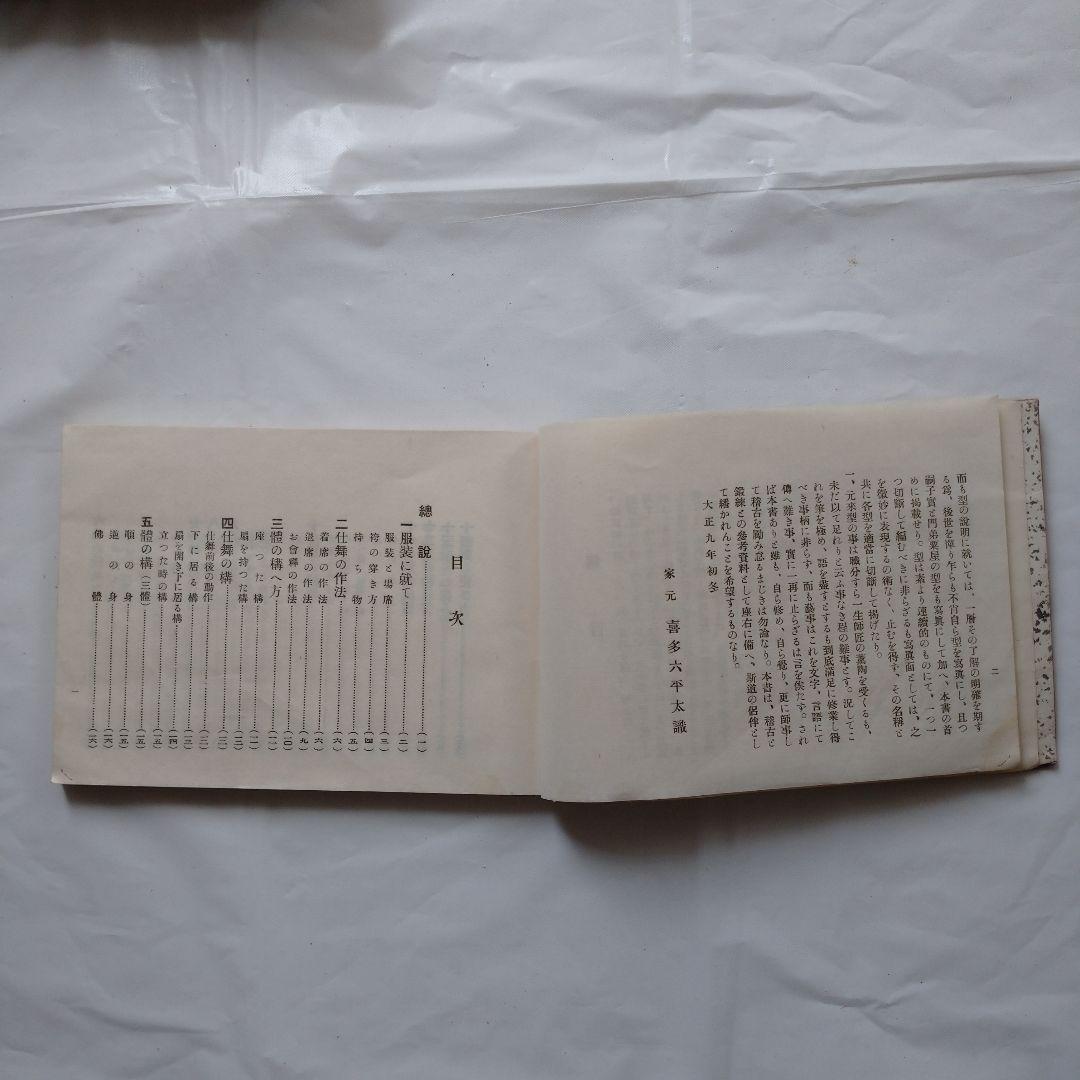 二
而も型の說明に就いては、一層その了解の明確を期す
る爲、後世を障り乍らも不肖自ら型を寫眞にし、且つ
嗣子實と門弟粟屋の型をも寫眞にして加へ、本書の首
めに揭載せり。型は素より連續的のものにて、一つ一
つ切斷して編むべきに非らざるも寫眞面としては、之
を微妙に表現するの術なく、止むを得ず、その名稱と
共に各型を適當に切斷して揭げたり。
一、元來型の事は職分すら一生師匠の薰陶を受くるも、
未だ以て足れりと云ふ事なき程の難事とす。況してこ
れを筆を極め、語を盡すとするも到底滿足に修業し得
べき事柄に非らず、而も藝事はこれを文字、言語にて
傳へ難き事、實に一再に止らざるは言を俟たず。され
ば本書ありと雖も、自ら修め、自ら覺り、更に師事し
て稽古を勵み怠るまじきは勿論なり。本書は、稽古と
鍛練との參考資料として座右に備へ、斯道の侶伴とし
て繙かれんことを希望するものなり。
大正九年初冬
家元 喜多六平太識
目次
總說……(一)
一 服裝に就て……(二)
服裝と場席……(三)
袴の穿き方……(四)
持ち物……(五)
二 仕舞の作法……(六)
着席の作法……(六)
退席の作法……(九)
お會釋の作法……(一〇)
三 體の構へ方……(一一)
座つた構……(一一)
扇を持つた構……(一二)
四 仕舞の構……(一二)
仕舞前後の動作……(一二)
下に居る構……(一三)
扇を開き下に居る構……(一四)
立つた時の構……(一五)
五 體の構(三體)……(一五)
順の身……(一五)
道の身……(一六)
佛體……(一六)
一